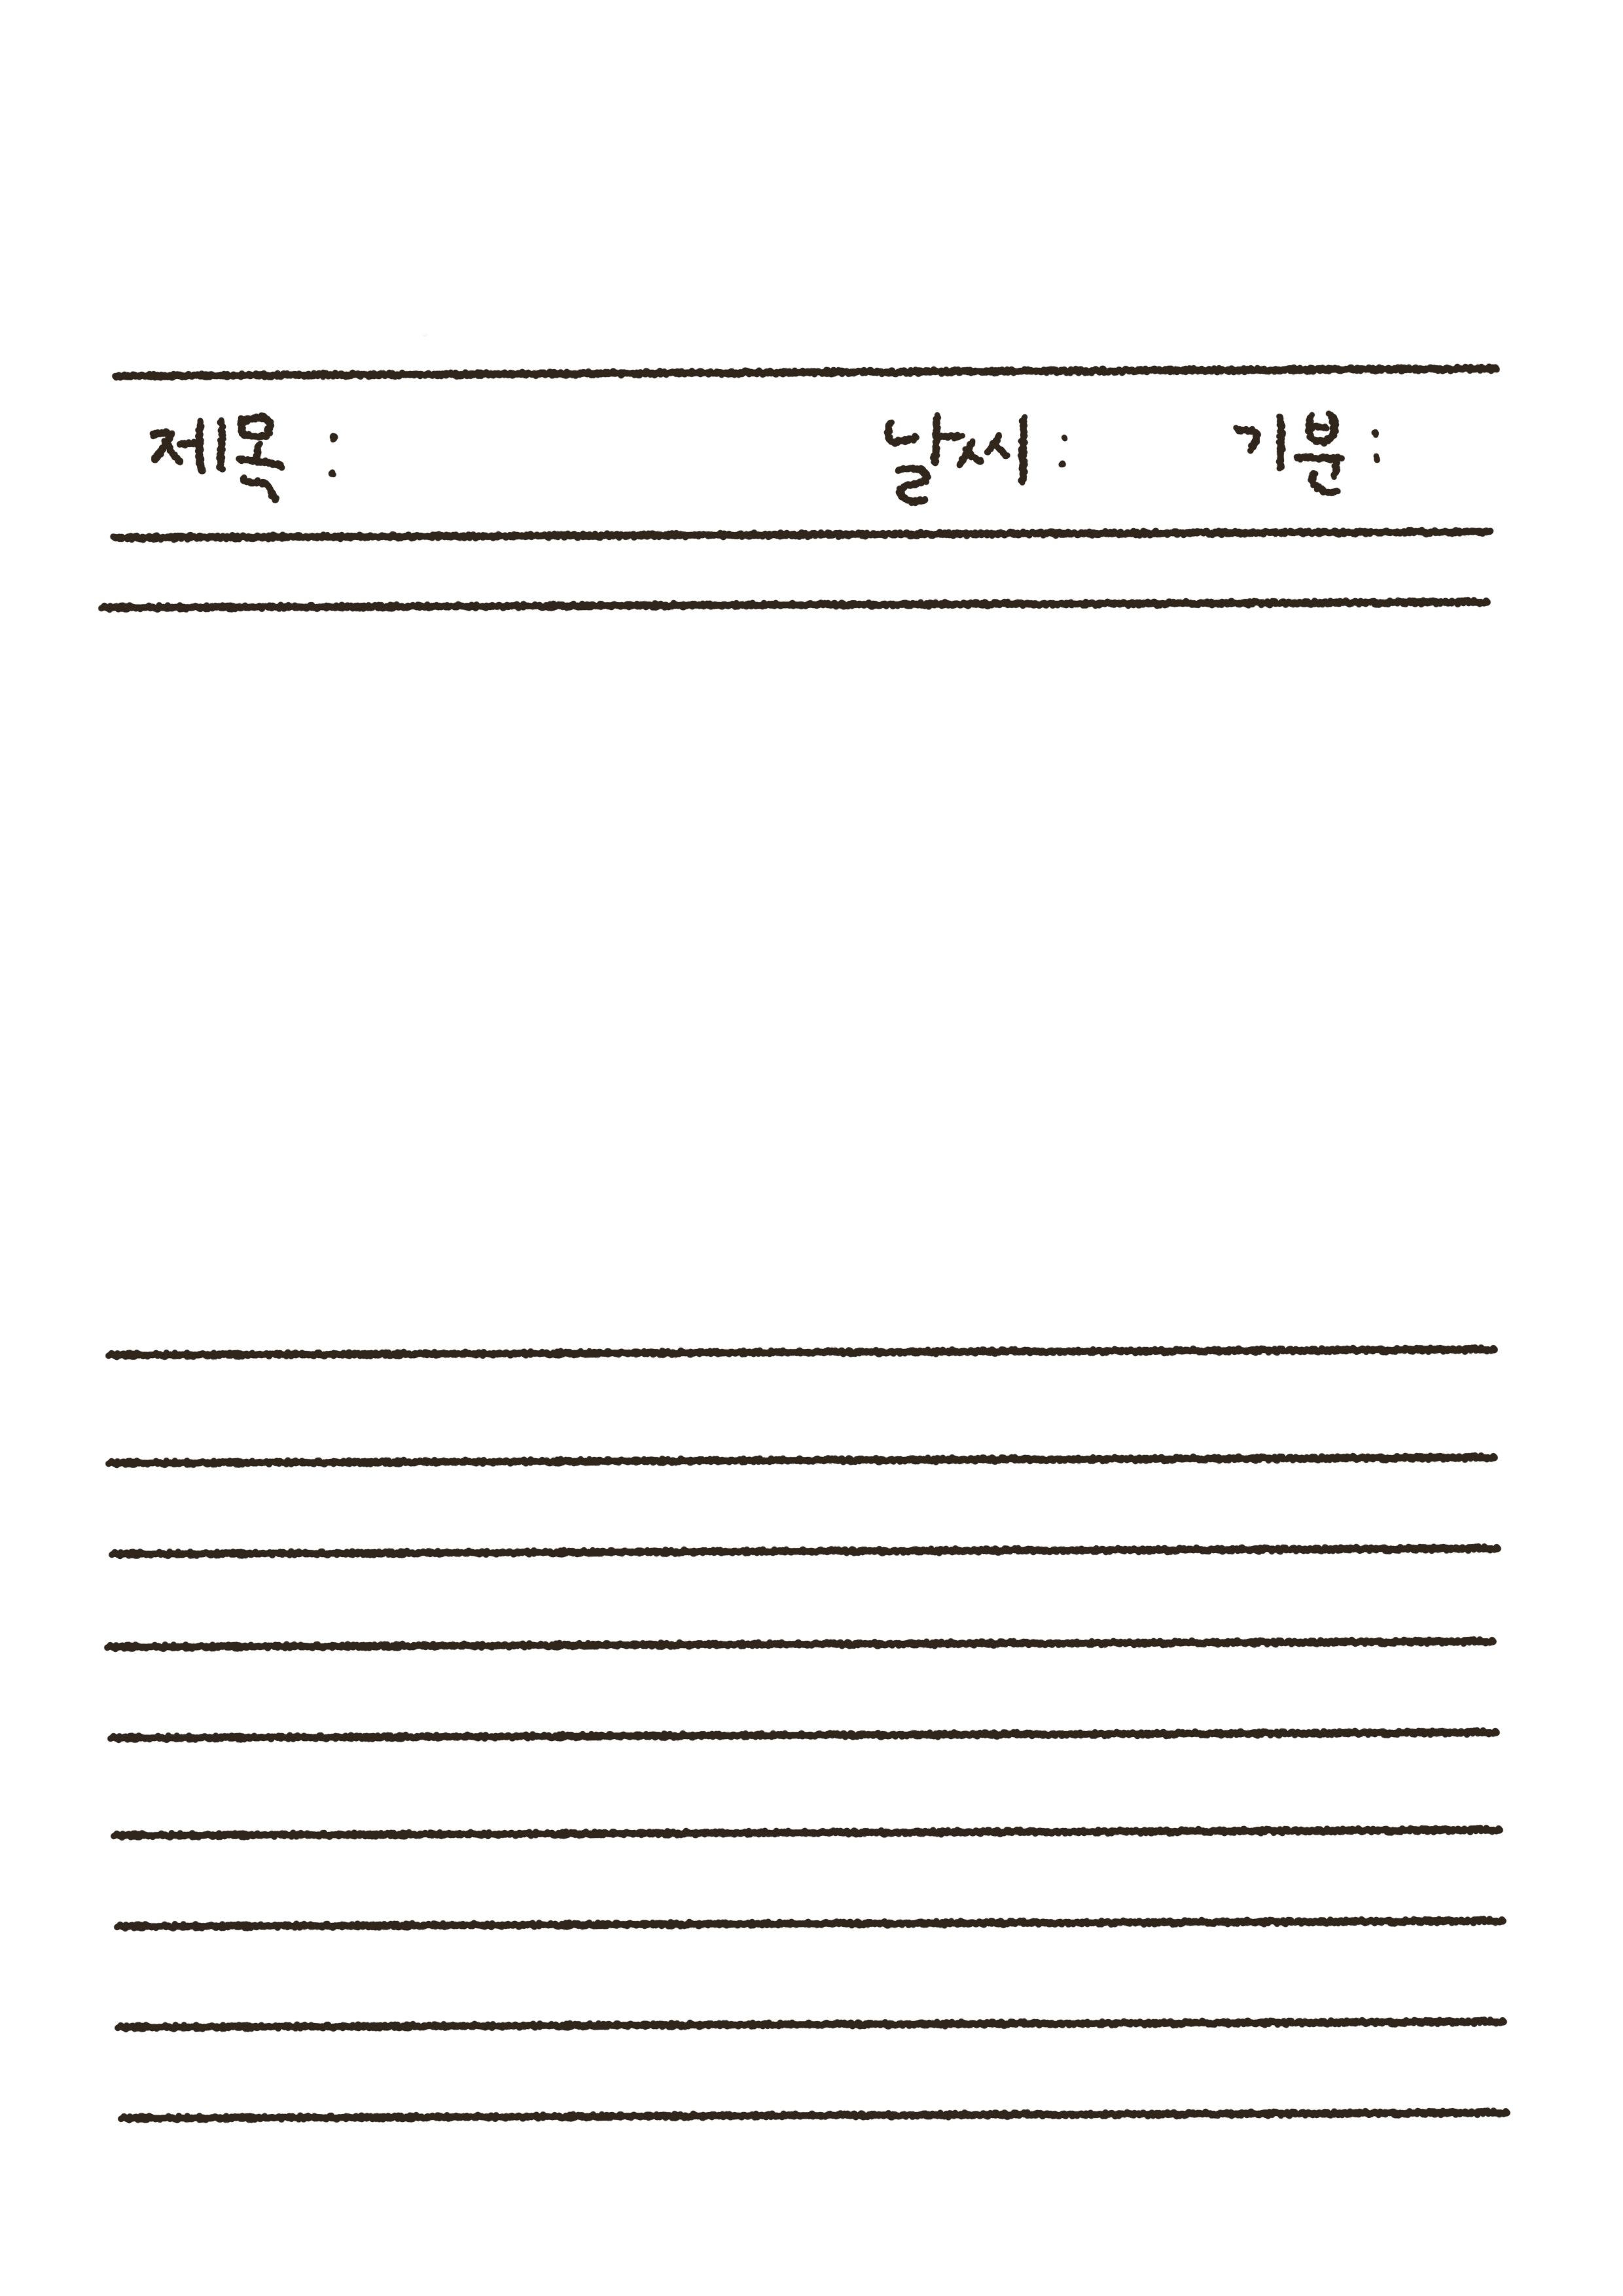 제목 : 날씨 : 기분 :